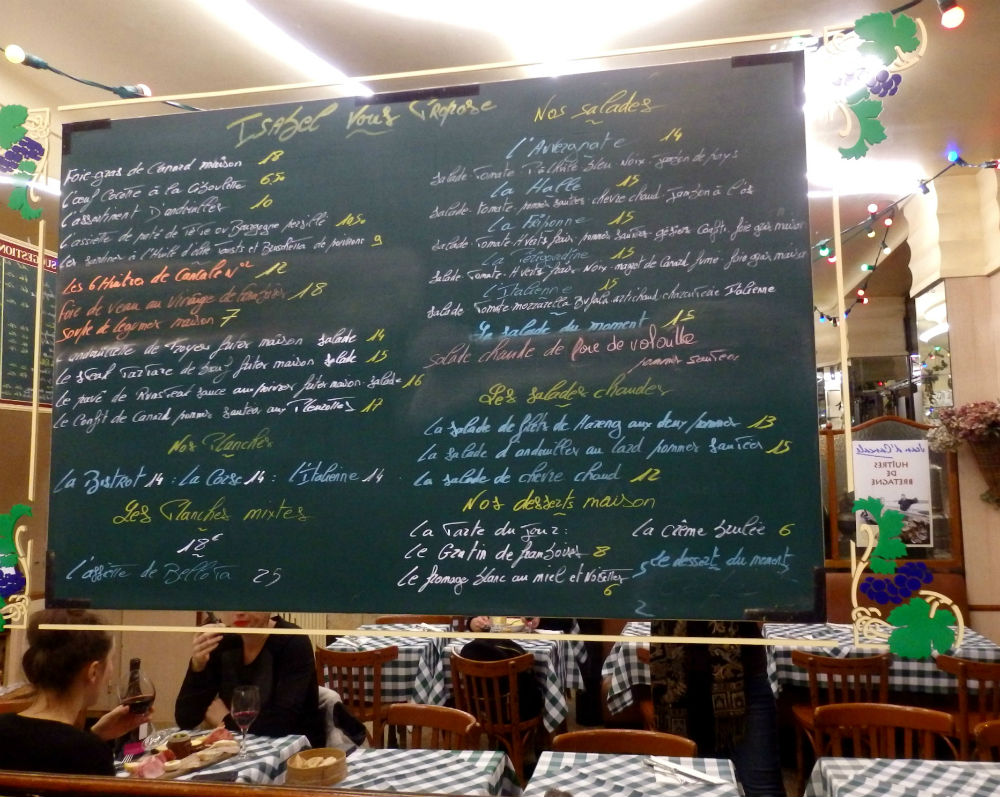 ISABEL Vous Propose
Foie gras de Canard maison 18
L'œuf Cocotte à la Ciboulette 6,50
L'assortiment D'andouilles 10
L'assiette de paté de Tête ou Bourgogne persillé 10,50
Les Sardines à l'Huile d'olive Toasts et 9
Les 6 Huitres de Cancale N°2 12
Foie de veau au Vinaigre de framboises 18
Soupe de légumes maison 7
L'andouillette de Troyes frites maison salade 14
Le steak Tartare de bœuf frites maison salade 15
Le pavé de Rumsteak sauce au poivre frites maison salade 16
Le Confit de Canard pommes sautées aux 17
Nos Planches
La Bistrot 14 : La Corse 14 : L'Italienne 14
Les Planches mixtes
18€
L'assiette de Bellota 25
Nos salades
L'Auvergnate 14
Salade Tomate Bleu Noix Jambon de pays
La Halle 15
Salade Tomate pommes sautées chèvre chaud Jambon à l'os
La Friponne 15
Salade Tomate H verts frais pommes sautées gésiers Confits foie gras maison
La Périgourdine 15
Salade Tomate H verts frais Noix magret de Canard fumé foie gras maison
L'Italienne 15
Salade Tomate mozzarella Bufala artichaud charcuterie Italienne
La salade du moment 15
Salade chaude de foie de volaille
pommes sautées
Les salades chaudes
La salade de filets de Hareng aux deux pommes 13
La salade d'andouilles au lard pommes sautées 15
La salade de chèvre chaud 12
Nos desserts maison
La Tarte du Jour :
Le Gratin de framboises 8
Le fromage blanc au miel et Noisettes 6
La crème brulée 6
Le dessert du moment
SUGGESTION
HUÎTRES
DE
BRETAGNE